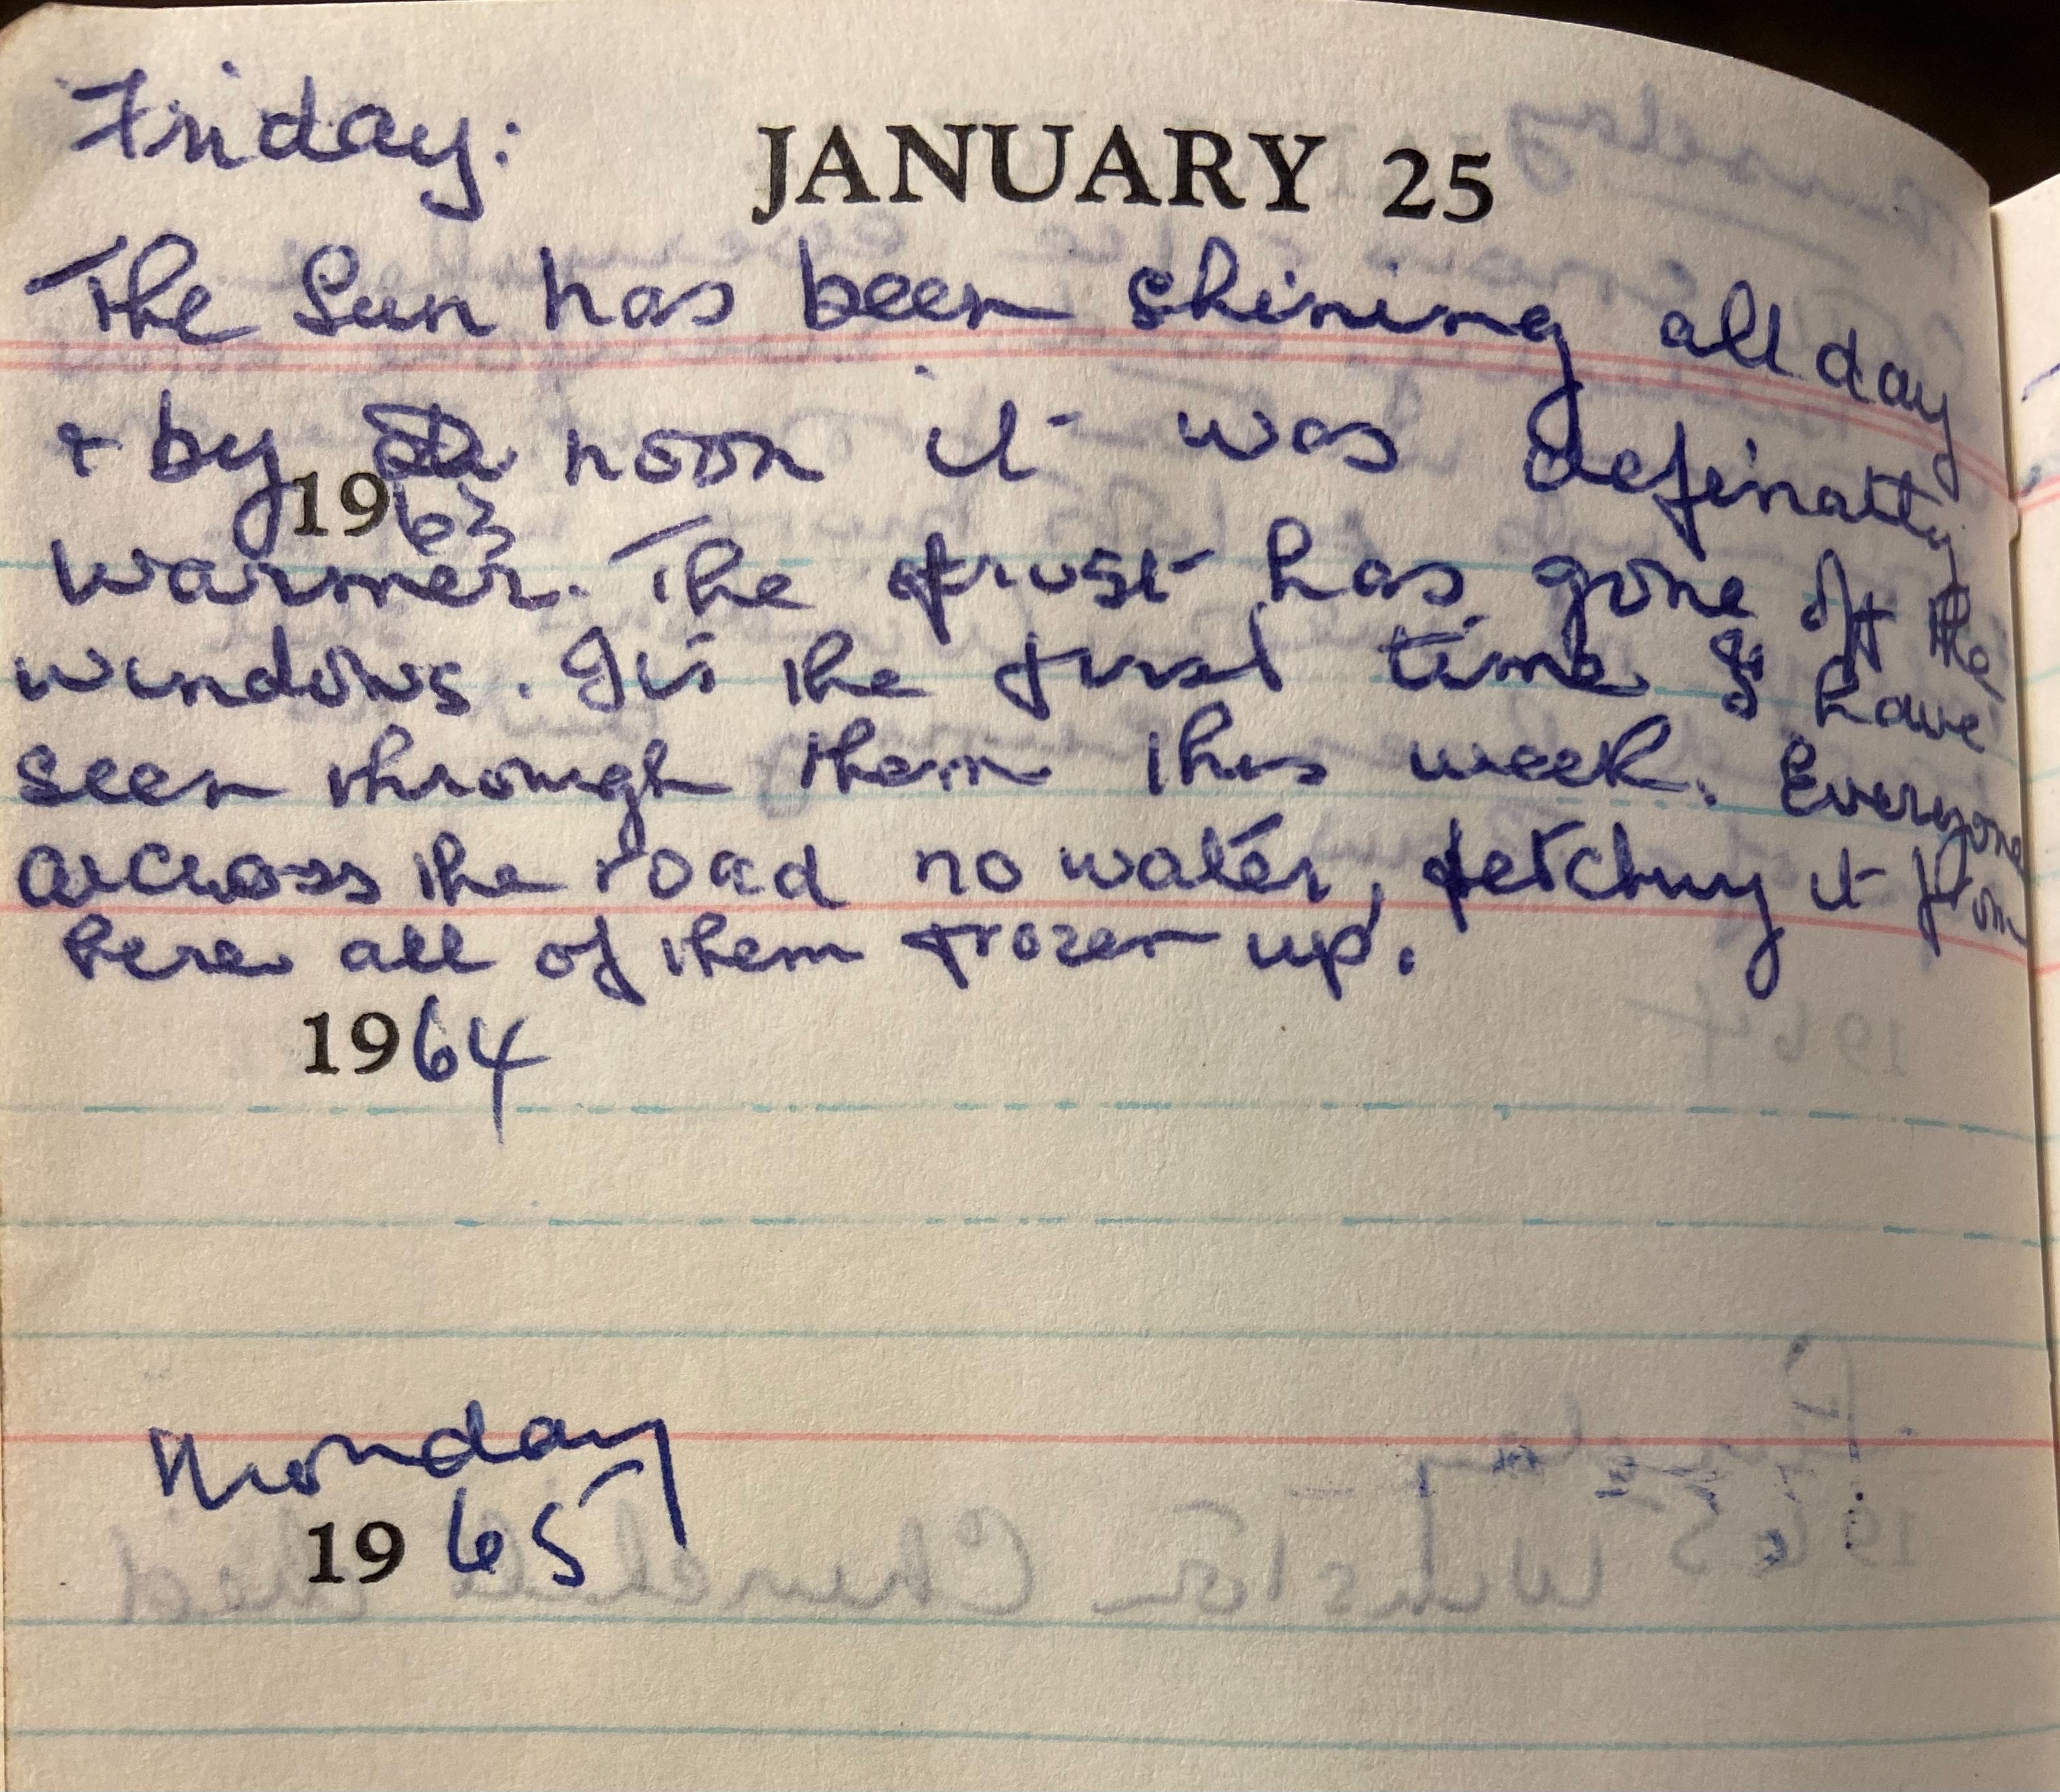 Friday:
JANUARY 25
The Sun has been shining all day
+ by noon it was definatly
1963
warmer. The frost has gone off the
windows. It is the first time I have
seen through them this week. Everyone
across the road no water, fetching it from
here all of them frozen up.
1964
Monday
1965